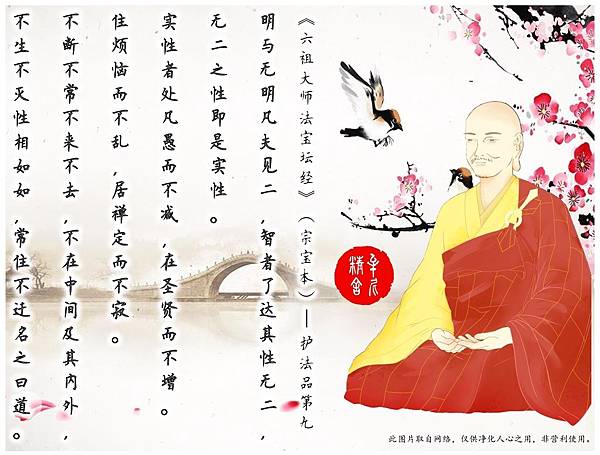 《六祖大师法宝坛经》(宗宝本)—护法品第九
明与无明凡夫见二,智者了达其性无二,
无二之性即是实性。
实性者处凡愚而不减,在圣贤而不增。
住烦恼而不乱,居禅定而不寂。
不断不常不来不去,不在中间及其内外,
不生不灭性相如如,常住不迁名之曰道。
精舍
此图片取自网络，仅供净化人心之用，非营利使用。